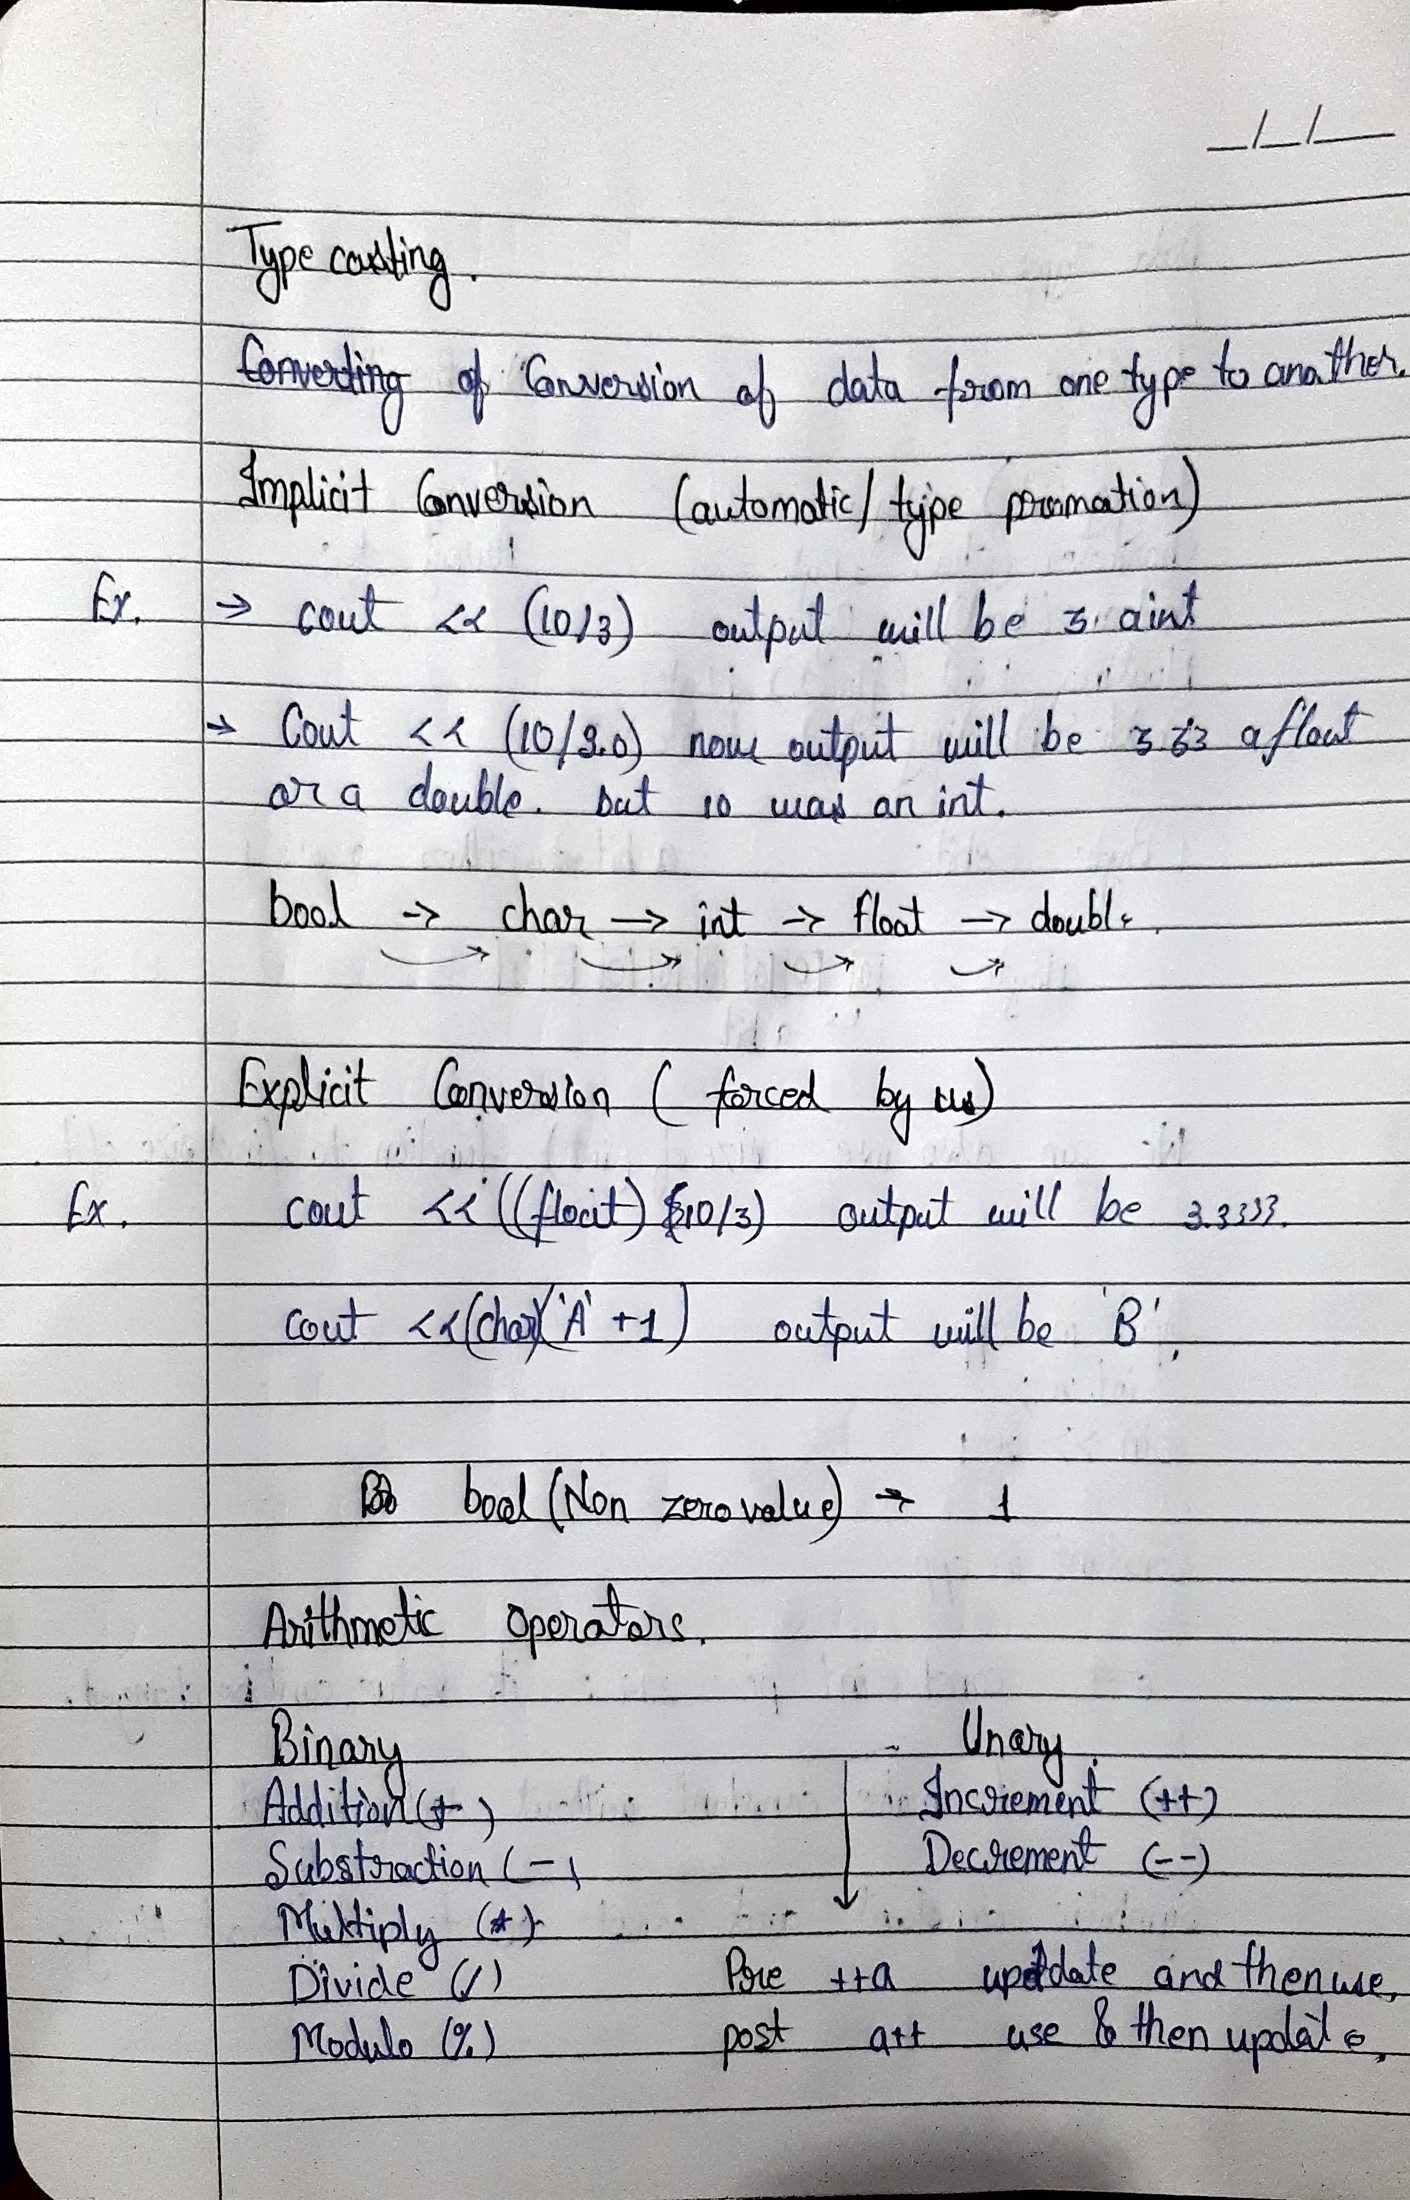 Type casting.
Converting of Conversion of data from one type to another.
Implicit Conversion (automatic/type promotion)
Ex. → cout << (10/3) output will be 3. a int
→ Cout << (10/3.0) now output will be 3.33 a float
or a double. but 10 was an int.
bool → char → int → float → double.
Explicit Conversion (forced by us)
Ex. cout << ((float) 10/3) output will be 3.3333.
cout <<(char)('A' +1) output will be 'B'.
Bo bool (Non zero value) → 1
Arithmetic Operators.
Binary Unary.
Addition (+) Increment (++)
Substraction (-) Decrement (--)
Multiply (*)
Divide (/) Pre ++a update and then use.
Modulo (%) post a++ use & then update.